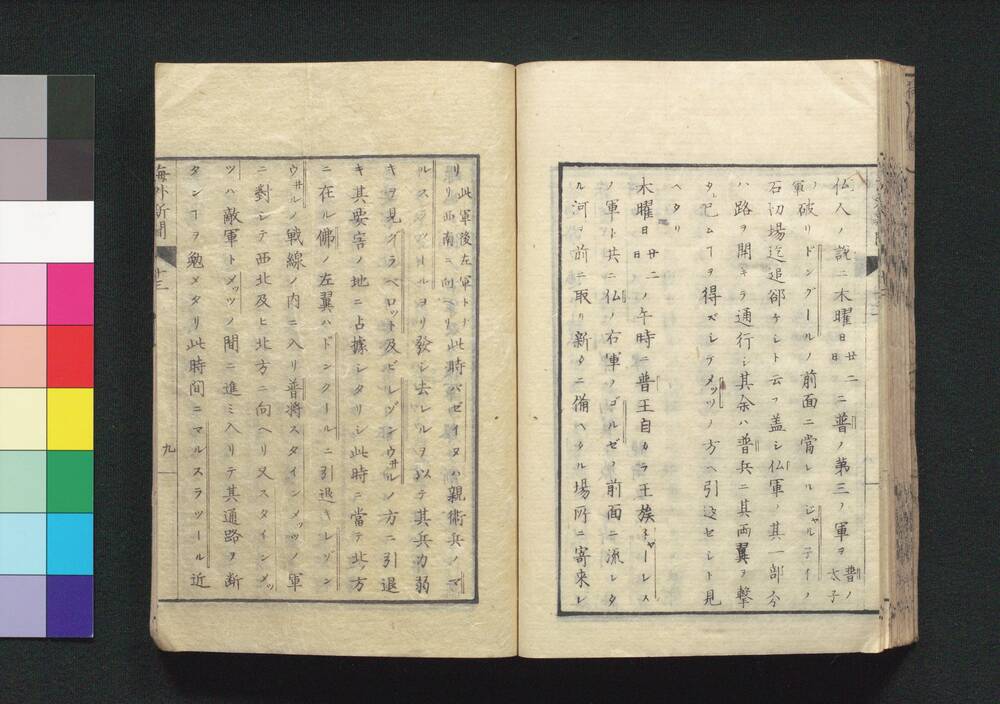 仏人ノ説ニ木曜日廿二日ニ普ノ第三ノ軍ヲ普ノ太子
ノ軍破リドングールノ前面ニ當レルジャル子イノ
石切場迄追郤ケシト云フ蓋シ仏軍ノ其一部分
ハ路ヲ開キテ通行シ其余ハ普兵ニ其両翼ヲ撃
タレ已ムヲ得ズシテメッツノ方ヘ引退セシト見
ヘタリ
木曜日廿二日ノ午時ニ普王自カラ王族
ノ軍ト共ニ仏ノ右軍ノゴルゼノ前面ニ流レタ
ル河ヲ前ニ取リ新タニ備ヘタル場所ニ寄来レ
リ此軍後左軍トナリ西南ニ向ヘリ此時バゼイヌハ親衛兵ノマ
ルスラツールヨリ發シ去レルヲ以テ其兵力弱
キヲ見グラベロット及ビレゾンウ井ルノ方ニ引退
キ其要害ノ地ニ占據シタリシ此時ニ當テ北方
ニ在ル佛ノ左翼ハドンクールニ引退キレゾン
ウ井ルノ戦線ノ内ニ入リ普将スタインメッツノ軍
ニ對シテ西北及ヒ北方ニ向ヘリ又スタインメッ
ツハ敵軍トメッツノ間ニ進ミ入リテ其通路ヲ断
タンヿヲ勉メタリ此時間ニマルスラツール近
海外新聞
十三
九